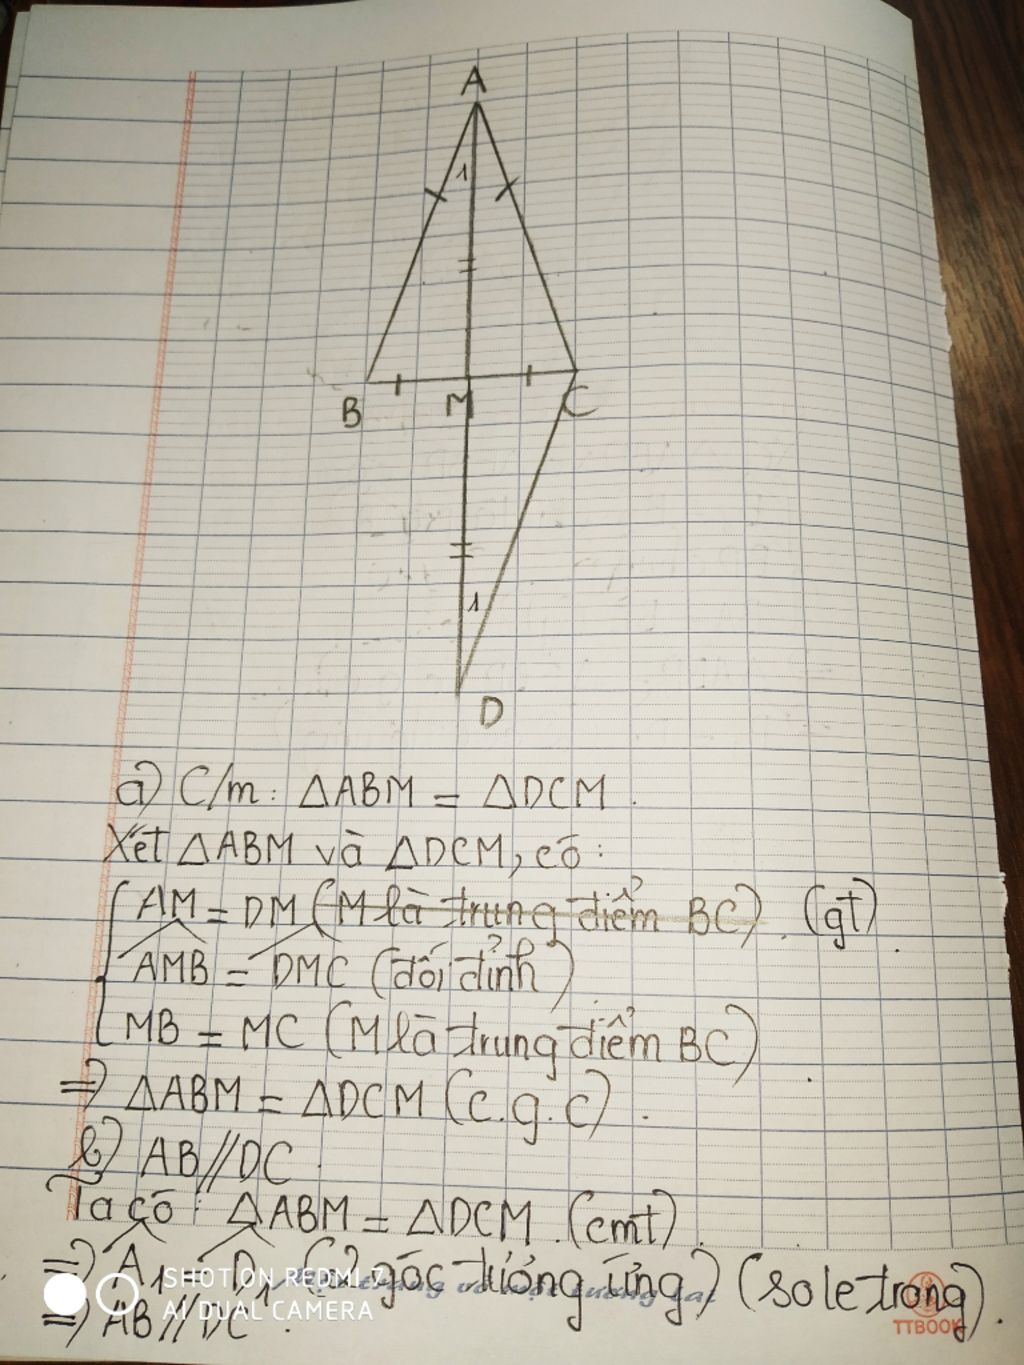 A
1
B
M
C
1
D
a) C/m: ΔABM = ΔDCM.
Xét ΔABM và ΔDCM, có:
AM = DM (M là trung điểm BC). (gt)
AMB = DMC (đối đỉnh)
MB = MC (M là trung điểm BC)
=> ΔABM = ΔDCM (c.g.c).
b) AB//DC
Ta có: ΔABM = ΔDCM (cmt)
=> A1 = D1 (2 góc tương ứng) (so le trong).
=> AB // DC.
SHOT ON REDMI 7
AI DUAL CAMERA
TTBOOK